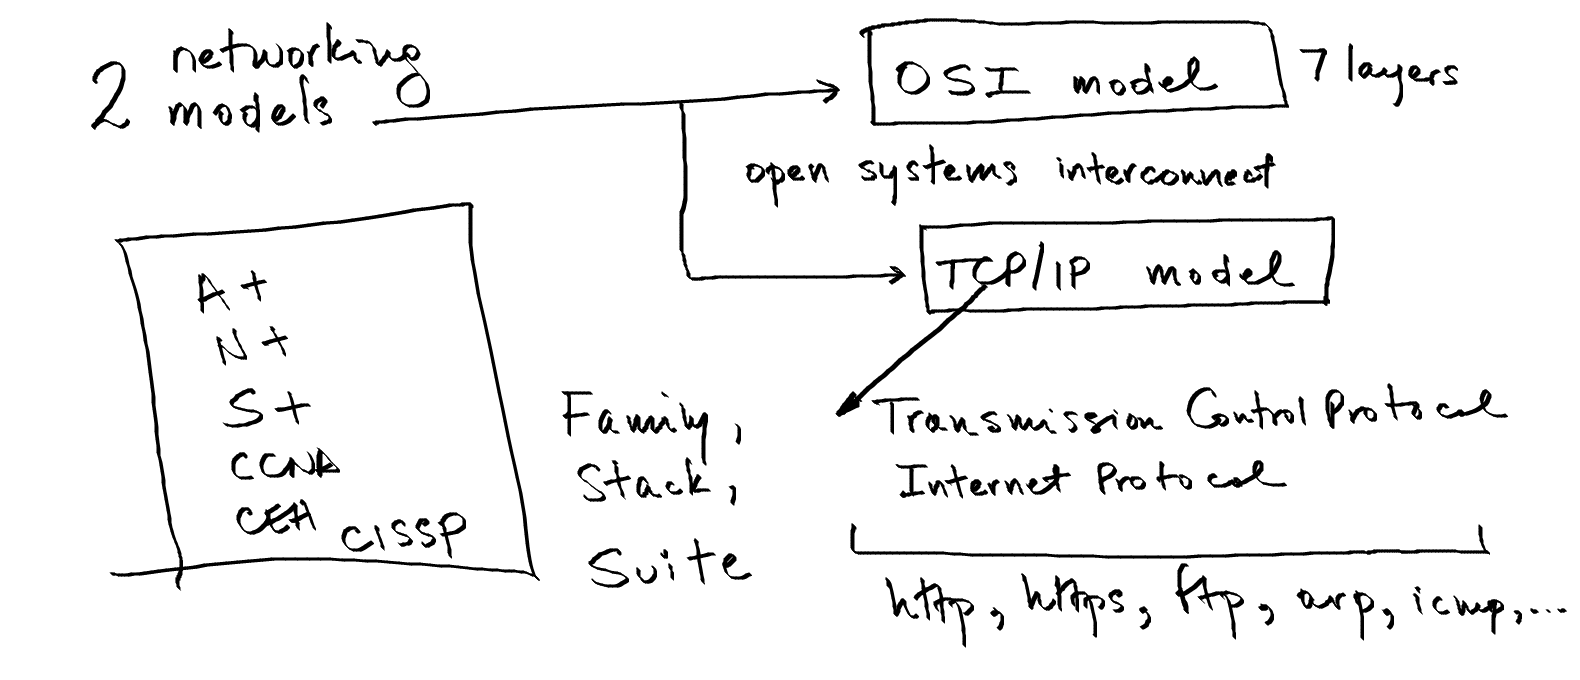 2 networking
models
OSI model
7 layers
open systems interconnect
TCP/IP model
A+
N+
S+
CCNA
CEH
CISSP
Family,
Stack,
Suite
Transmission Control Protocol
Internet Protocol
http, https, ftp, arp, icmp,...